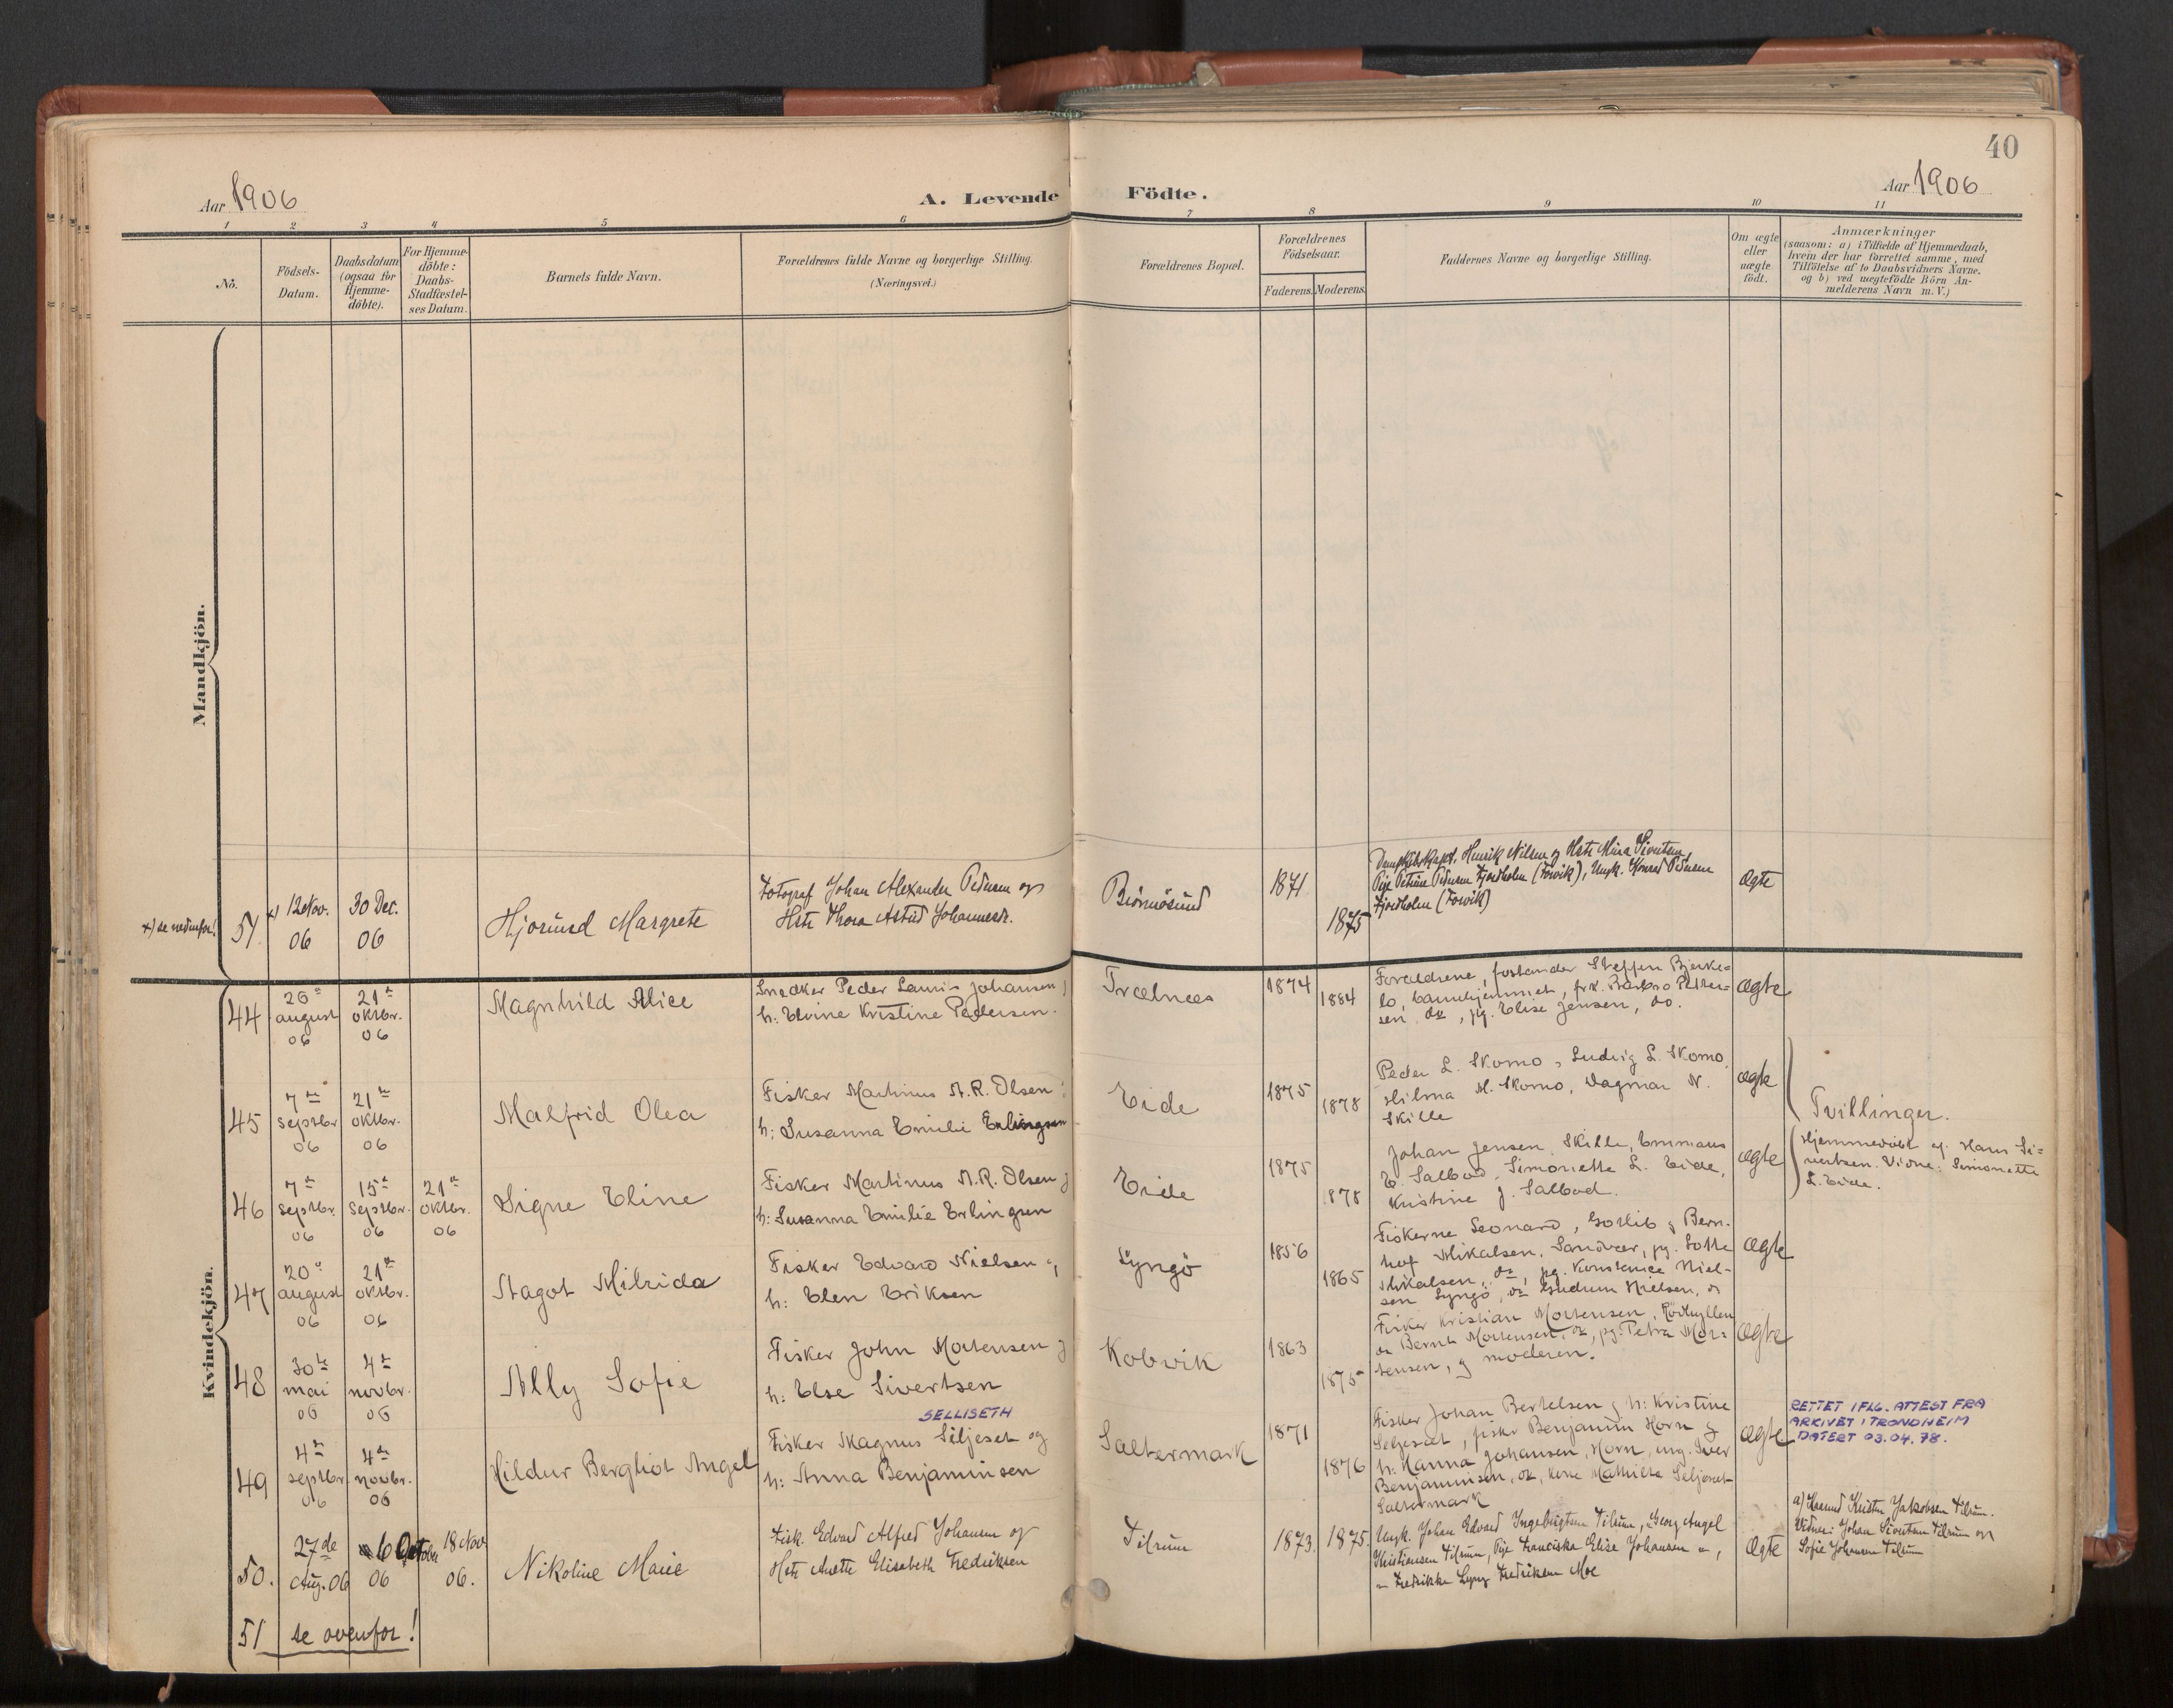 40
Aar 1906
A. Levende Födte.
Aar 1906
1 2 3 4 5 6 7 8 9 10 11
Nö.
Födsels-
Datum.
Daabsdatum
(ogsaa for
Hjemme-
döbte).
For Hjemme-
döbte:
Daabs-
Stadfæstel-
ses Datum.
Barnets fulde Navn.
Forældrenes fulde Navne og borgerlige Stilling.
(Næringsvei.)
Forældrenes Bopæl.
Forældrenes
Födselsaar.
Faderens.
Moderens.
Faddernes Navne og borgerlige Stilling.
Om ægte
eller
uægte
födt.
Anmærkninger
(saasom: a) i Tilfælde af Hjemmedaab,
hvem der har forrettet samme, med
Tilföielse af to Daabsvidners Navne.
og b) ved uægtefödte Börn An-
melderens Navn m. V.)
Mandkjön.
x) se nedenfor!
51
x) 12 Nov.
06
30 Dec.
06
Hjorund Margrete
Fotograf Johan Alexander Pedersen og
Hstr Thora Astrid Johannesdr.
Brönnösund
1871
1875
Dampskibskapt. Henrik Nilsen og Hstr Mina Sivertsen,
Pige Petrine Pedersen Fjordholm (Forvik), Ungk. Konrad Pedersen
Fjordholm (Forvik)
Ægte
Kvindekjön.
44
26de
august
06
21de
oktbr.
06
Magnhild Alice
Snedker Peder Lauris Johansen og
h: Elvine Kristine Pedersen.
Trælnes
1874
1884
Forældrene, forstander Steffen Bjerke-
lo, barnehjemmet, frk. Barbro Petter-
sen do, pg. Elise Jensen, do.
ægte
45
7de
septbr
06
21de
oktbr.
06
Malfrid Olea
Fisker Martinus A.R. Olsen og
h: Susanna Emilie Erlingsen
Eide
1875
1878
Peder L. Skomo, Ludvig L. Skomo,
Hilma M. Skomo, Dagmar N.
Skille
ægte
Tvillinger.
46
7de
septbr.
06
15de
septbr.
06
21de
oktbr.
06
Signe Eline
Fisker Martinus A.R. Olsen og
h: Susanna Emilie Erlingsen
Eide
1875
1878
Johan Jensen Skille, Emmaus
E. Salbod, Simonette L. Eide,
Kristine J. Salbod.
ægte
Hjemmedöbt af Hans Si-
vertsen. Vidne: Simonette
L. Eide.
47
20de
august
06
21de
oktbr.
06
Aagot Milrida
Fisker Edvard Nielsen og
h: Elen Eriksen
Lyngö
1856
1865
Fiskerne Leonard, Gotlib og Bern-
hof Mikalsen, Sandvær, pg. Lotte
Mikalsen, do, pg. Konstance Niel-
sen Lyngö, do Gudrun Nielsen, do
ægte
48
30te
mai
06
4de
novbr.
06
Ally Sofie
Fisker John Mortensen og
h: Else Sivertsen
Kobvik
1863
1875
Fisker Kristian Mortensen, Rödhyllen
do Bernt Mortensen, do, pg: Petra Mor-
tensen, og moderen.
ægte
49
4de
septbr
06
4de
novbr.
06
Hildur Bergliot Angel
SELLISETH
Fisker Magnus Siljeset og
h: Anna Benjaminsen
Saltermark
1871
1876
Fisker Johan Bertelsen og h: Kristine
Seljeset, fisker Benjamin Horn og
h: Hanna Johansen, Horn, ung. Iver
Benjaminsen, do, kone Mathilde Seljeset
Saltermark
ægte
RETTET IFLG. ATTEST FRA
ARKIVET I TRONDHEIM
DATERT 03.04.78.
50.
27de
Aug. 06
6 October
06
18 Nov
06.
Nikoline Marie
Fisk. Edvard Alfred Johansen og
Hstr Anette Elisabeth Fredriksen
Tilrum
1873.
1875.
Ungk. Johan Edvard Ingebrigtsen Tilrum, Georg Angel
Kristiansen Tilrum, Pige Franciska Elise Johansen "
" Fredrikke Lyng Fredriksen Moe
Ægte
a) Kristen Jakobsen Tilrum.
Vidner: Johan Sivertsen Tilrum og
Sofie Johansen Tilrum
51 se ovenfor!